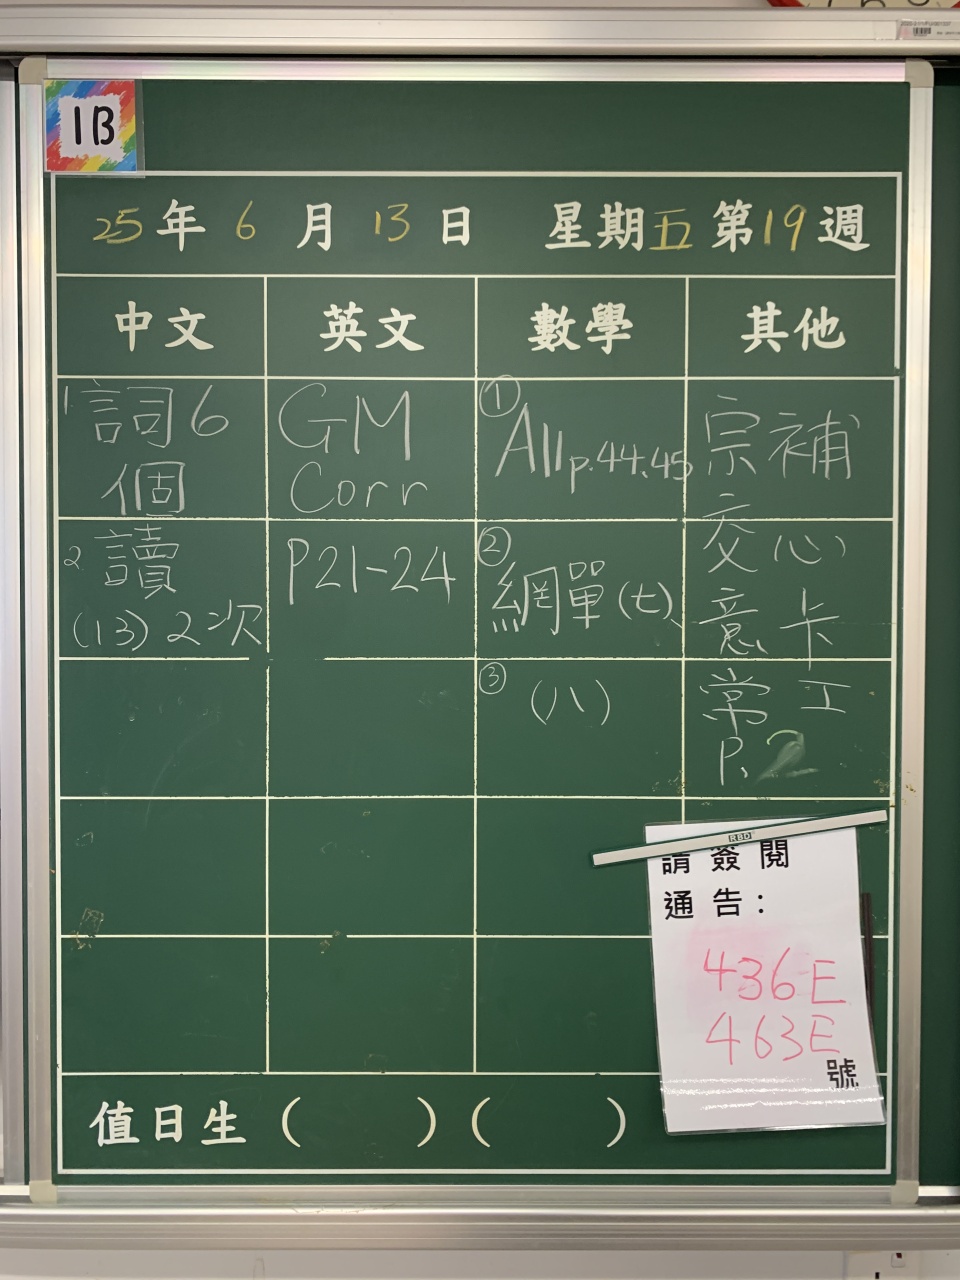 1B
25年6月13日 星期五 第19週
中文 英文 數學 其他
1. 詞6
個
2 讀
(13) 2次
GM
Corr
P21-24
① All p.44.45
② 網單(七)
③ (八)
宗補
交心
意卡
常工
P. 2
RBD
請簽閱
通告:
436E
463E
號
值日生 ( ) ( )